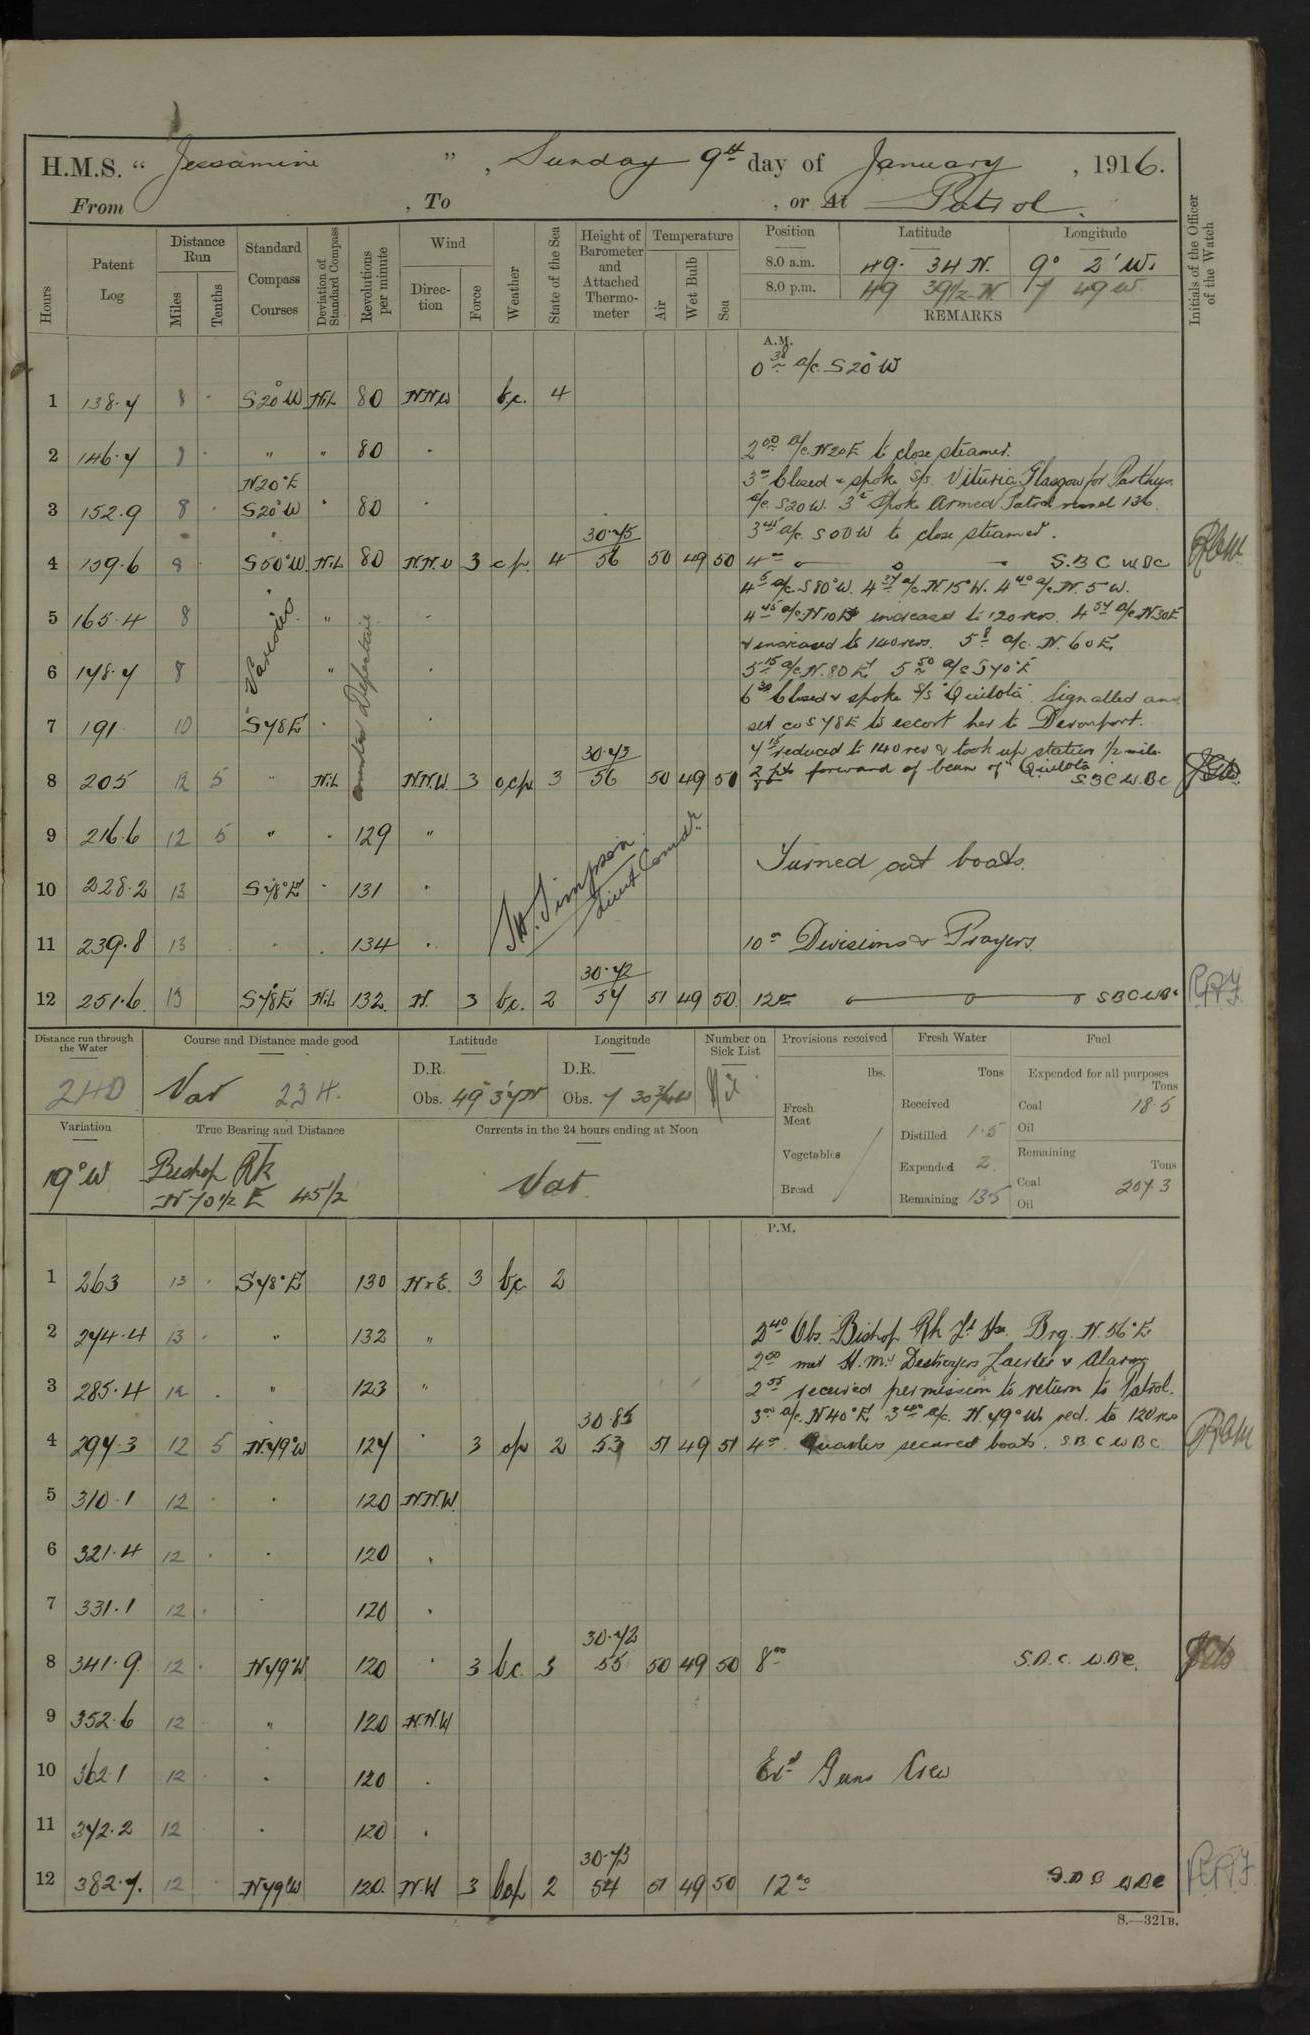 H.M.S. " Jessamine ", Sunday 9th day of January, 1916.
From , To , or At Patrol.
Hours Patent Log Distance Run Miles Tenths Standard Compass Courses Deviation of Standard Compass Revolutions per minute Wind Direction Force Weather State of the Sea Height of Barometer and Attached Thermometer Temperature Air Wet Bulb Sea Position Latitude Longitude Initials of the Officer of the Watch
8.0 a.m. 49. 34 N. 9° 2' W.
8.0 p.m. 49 39½ N 7 49 W
REMARKS
A.M.
0 38 a/c S20°W
1 138.7 8 S20°W Nil 80 NNW b.c. 4
2 146.7 8 " " 80 2 00 a/c N20E to close steamer.
N20°E 3 00 Closed & spoke S/s Vituria Glasgow for
3 152.9 8 S20°W 80 a/c S20W. Spoke Armed Patrol vessel 136
3 45 a/c S 50 W to close steamer.
30.75
4 159.6 8 S50°W. Nil 80 N.N.W 3 c.p. 4 56 50 49 50 4 00 S.B C W Bc
4 5 a/c S80°W. 4 27 a/c N.15°W. 4 40 a/c N. 5°W.
5 165.4 8 Various " 4 45 a/c N10E increased to 120 revs. 4 57 a/c N30E
& increased to 140 revs. 5 8 a/c N. 60 E.
6 178.7 8 " counter Defective 5 15 a/c N.80E 5 50 a/c S70°E
6 30 Closed & spoke S/S "Quilota" Signalled and
7 191 10 S78E set co S78E to escort her to Devonport.
30.73 7 15 reduced to 140 rev & took up station ½ mile
8 205 12 5 " Nil N.N.W. 3 o,c,p. 3 56 50 49 50 2 pts forward of beam of "Quilota" S B C W. Bc
9 216.6 12 5 " 129 "
Turned out boats.
10 228.2 13 S78°E 131
W. Simpson
Lieut Comdr.
11 239.8 13 134 10 00 Divisions & Prayers.
30.72
12 251.6 13 S78E Nil 132 N. 3 b.c. 2 57 51 49 50 12 00 S B C W Bc
Distance run through the Water Course and Distance made good Latitude Longitude Number on Sick List Provisions received Fresh Water Fuel
240 Var 234.
D.R. D.R.
Obs. 49° 37' N Obs. 7 30 Nil
lbs. Tons Expended for all purposes Tons
Fresh Meat Received Coal 18.5
Distilled 1.5 Oil
Vegetables Expended 2 Remaining Tons
Bread Remaining 135 Coal 207.3
Oil
Variation True Bearing and Distance Currents in the 24 hours ending at Noon
19°W Bishop Rk
N 70½ E 45½
Var.
P.M.
1 263 13 S78°E 130 N x E. 3 b.c. 2
2 274.4 13 " 132 " 2 40 Obs. Bishop Rk Lt Hse Brg. N.56°E
2 50 met H.M. Destroyers Laertes & Alarm
3 285.4 12 " 123 " 2 55 received permission to return to Patrol.
30.85 3 00 a/c N40°E 3 40 a/c. N.79°W. red. to 120 revs
4 297.3 12 5 N.79°W 127 3 op 2 53 51 49 51 4 00 Quarters secured boats. S.B C W B C
5 310.1 12 120 N.N.W.
6 321.4 12 120
7 331.1 12 120
30.72
8 341.9 12 N79°W 120 3 b.c. 3 55 50 49 50 8 00 S.B.C. W.Bc.
9 352.6 12 " 120 N.N.W
10 362.1 12 120 Exd Guns Crew
11 372.2 12 120
30.73
12 382.7. 12 N79°W 120. N.W 3 bcp 2 54 51 49 50 12 00 S.B C W Bc
S.—321B.